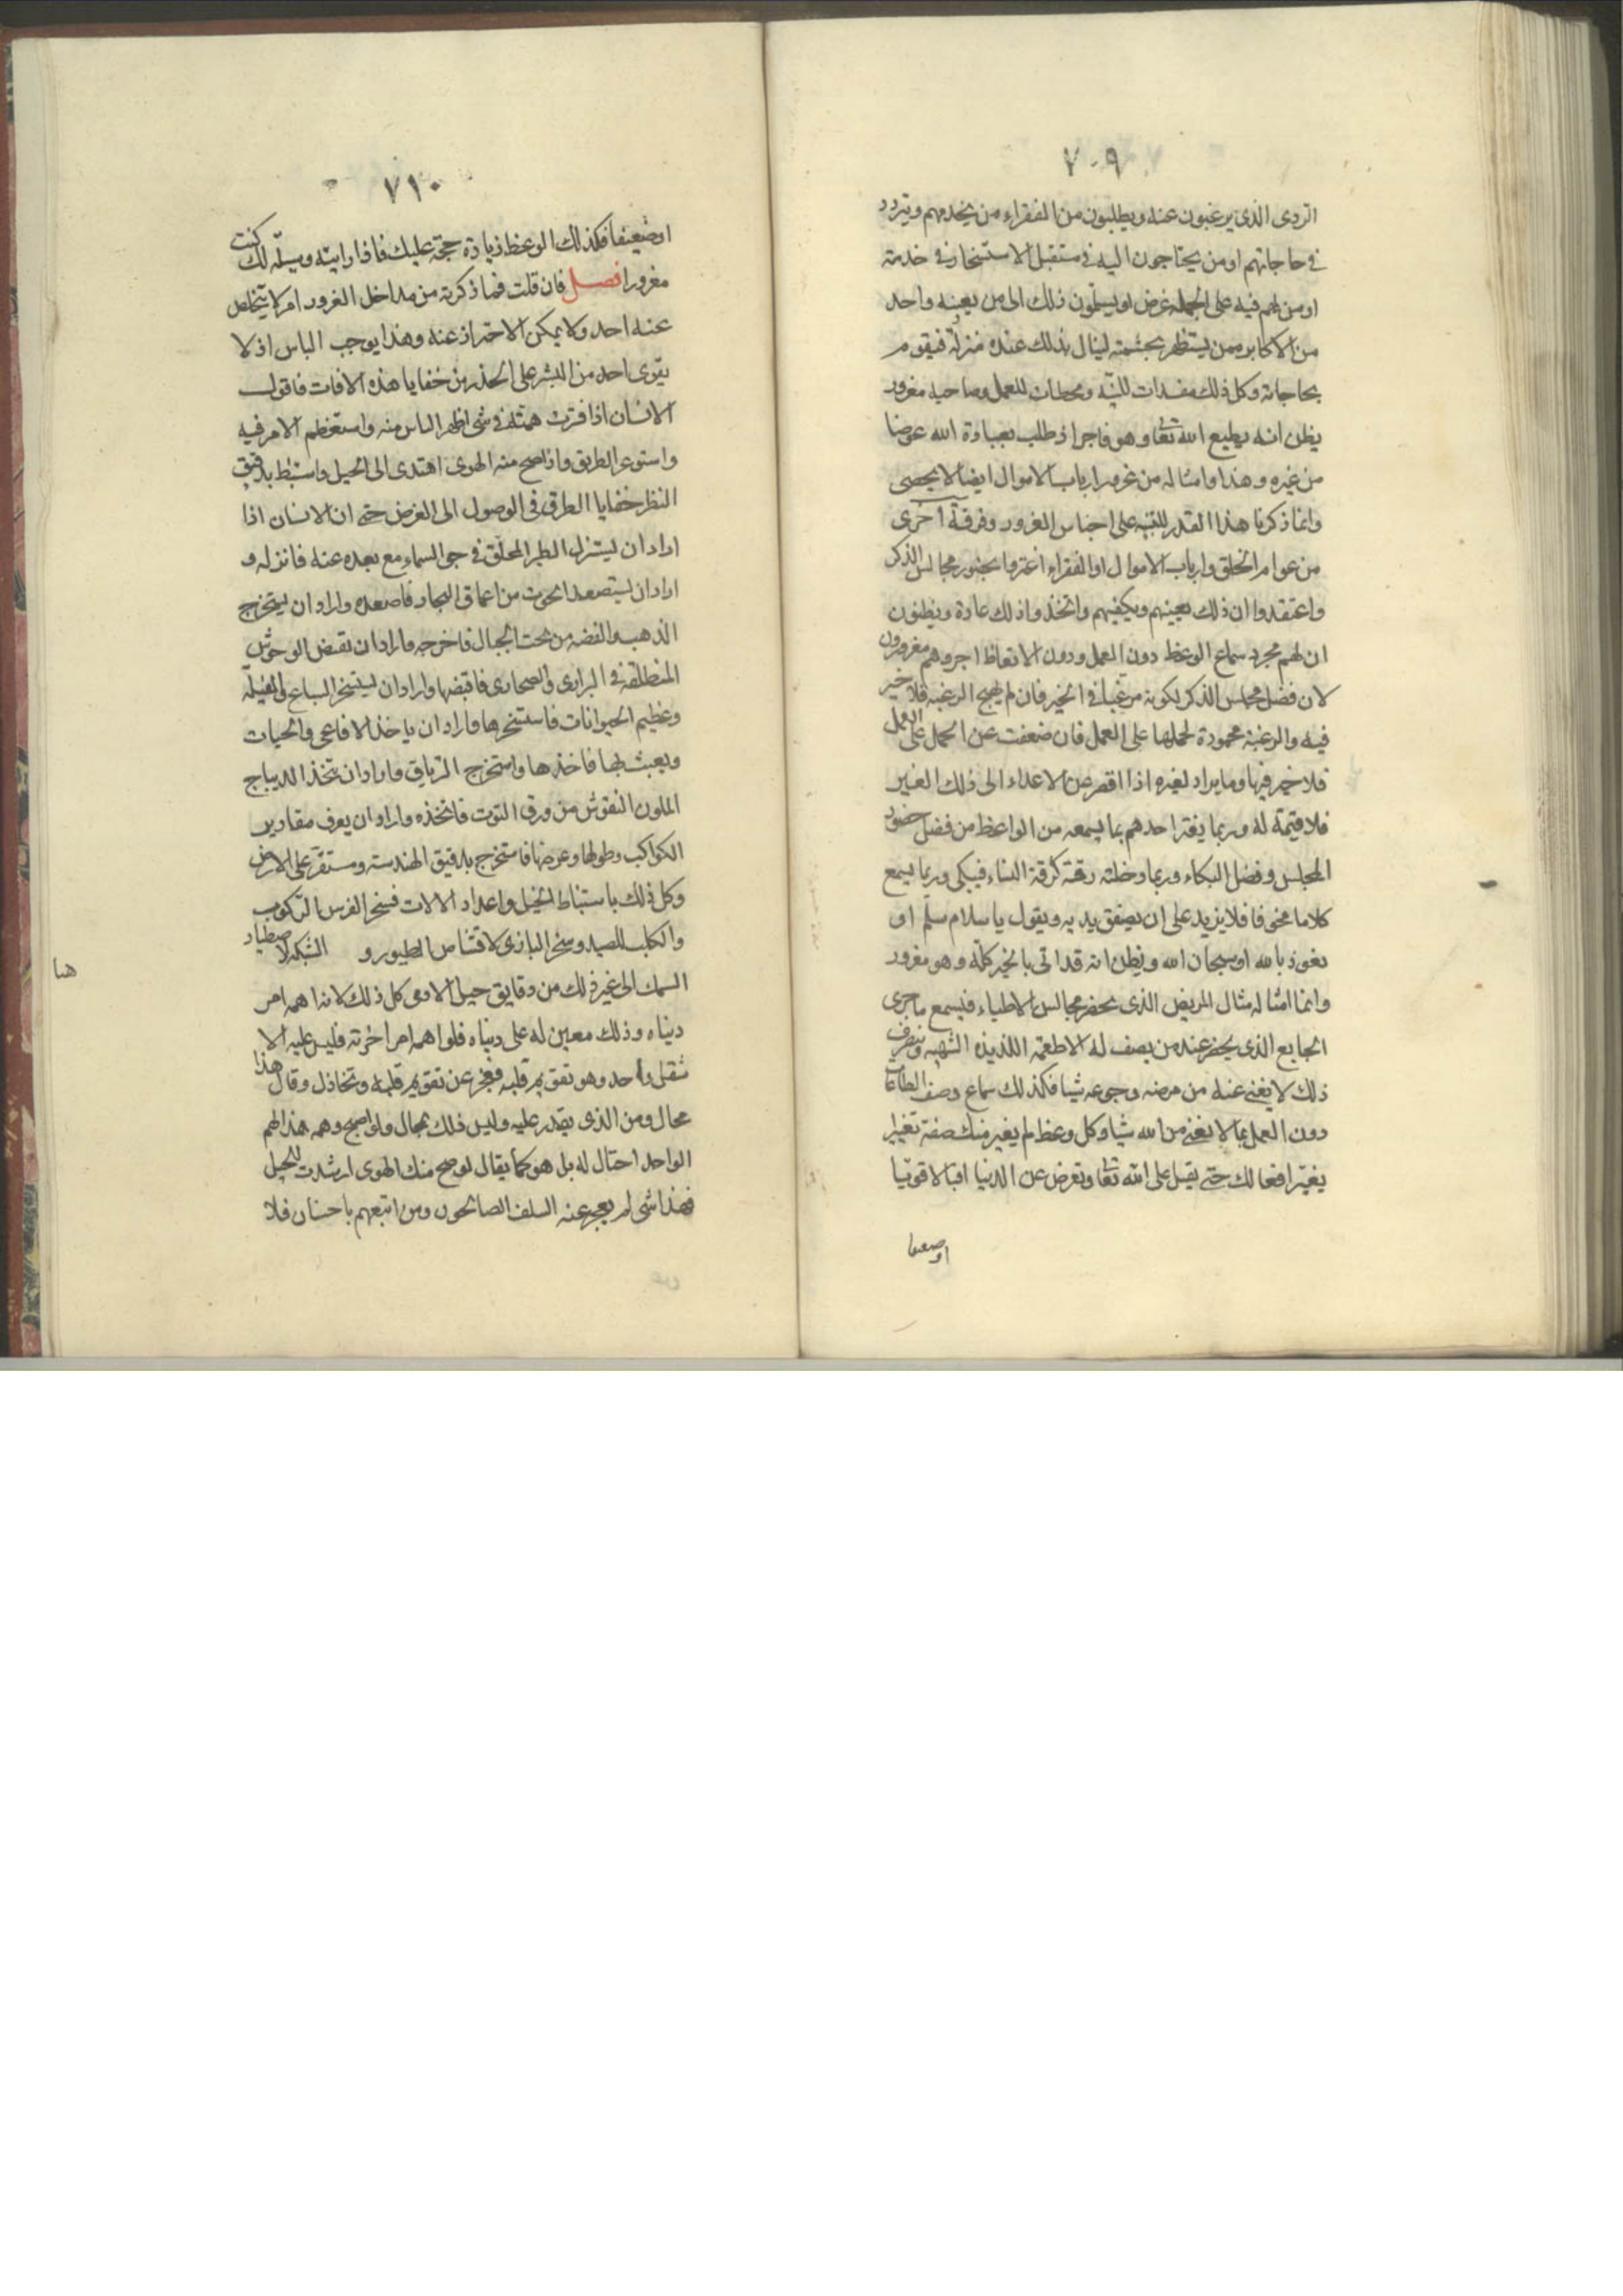 ٧٠٩
الردى الذى يرغبون عنه ويطلبون من الفقراء من يخدمهم ويتردد
فى حاجاتهم او من يحتاجون اليه فى مستقبل الاستسخار فى خدمته
او من لهم فيه على الجمله غرض او يسلمون ذلك الى من يعينه واحد
من الاكابر ممن يستظهر بحشمته لينال بذلك عنده منزلة فيقوم
بحاجاته وكل ذلك مفسدات للنيه ومحبطات للعمل وصاحبه مغرور
يظن انه يطيع الله تعالى وهو فاجر اذ طلب بعبادة الله عوضا
من غيره وهذا وامثاله من غرور ارباب الاموال ايضا لا يحصى
وانما ذكرنا هذا القدر للتنبيه على اجناس الغرور وفرقة اخرى
من عوام الخلق وارباب الاموال او الفقراء اغتروا بحضور مجالس الذكر
واعتقدوا ان ذلك يغنيهم ويكفيهم واتخذوا ذلك عادة ويظنون
ان لهم مجرد سماع الوعظ دون العمل ودون الاتعاظ اجر وهم مغرورون
لان فضل مجلس الذكر لكونه مرغبا فى الخير فان لم يهيج الرغبه فلا خير
فيه والرغبة محمودة لحملها على العمل فان ضعفت عن الحمل على العمل
فلا خير فيها وما يراد لغيره اذا اقصر عن الاعداء الى ذلك الغير
فلا قيمة له وربما يغتر احدهم بما يسمعه من الواعظ من فضل حضور
المجلس وفضل البكاء وربما دخلته رقة كرقة النساء فيبكى وربما يسمع
كلاما مخوفا فلا يزيد على ان يصفق يديه ويقول يا سلام سلم او
نعوذ بالله او سبحان الله ويظن انه قد اتى بالخير كله وهو مغرور
وانما امثاله مثال المريض الذى يحضر مجالس الاطباء فيسمع ما جرى
الجايع الذى يحضر عنده من يصف له الاطعمه اللذيذه الشهيه وينصرف
ذلك لا يغنى عنه من مرضه وجوعه شيا فكذلك سماع وصف الطاعات
دون العمل بها لا يغنى من الله شيا وكل وعظ لم يغير منك صفة تغيرا
يغير افعالك حتى يقبل على الله تعالى وتعرض عن الدنيا اقبالا قويا
او ضعيفا
٧١٠
او ضعيفا فكذلك الوعظ زيادة حجة عليك فاذا رايته وسيلة لك كنت
مغرورا فصل فان قلت فما ذكرته من مداخل الغرور امر لا يتخلص
عنه احد ولا يمكن الاحتراز عنه وهذا يوجب الياس اذ لا
يقوى احد من البشر على الحذر من خفايا هذه الافات فاقول
الانسان اذا فترت همته فى شى اظهر الياس منه واستعظم الامر فيه
واستوعر الطريق واذا صح منه الهوى اهتدى الى الحيل واستنبط بدقيق
النظر خفايا الطرق فى الوصول الى الغرض حتى ان الانسان اذا
اراد ان يستنزل الطير المحلق فى جو السماء مع بعده عنه فانزله و
اراد ان يستصعد الحوت من اعماق البحار فاصعده واراد ان يستخرج
الذهب والفضه من تحت الجبال فاخرجه واراد ان تقبض الوحوش
المنطلقة فى البرارى والصحارى فاقبضها واراد ان ليستسخر السباع والفيلة
وعظيم الحيوانات فاستسخرها واراد ان ياخذ الافاعى والحيات
ويعبث بها فاخذها واستخرج الترياق واراد ان يتخذ الديباج
الملون النقوش من ورق التوت فاتخذه واراد ان يعرف مقادير
الكواكب وطولها وعرضها فاستخرج بدقيق الهندسة ومستقر على الارض
وكل ذلك باستنباط الحيل واعداد الالات فسخر الفرس للركوب
والكلب للصيد وسخر البازى لاقتناص الطيور و الشبكه لاصطياد
هيا
السمك الى غير ذلك من دقايق حيل الادمى كل ذلك لانه اهمه امر
دنياه وذلك معين له على دنياه فلو اهمه امر اخرته فليس عليه الا
شغل واحد وهو تقويم قلبه فعجز عن تقويم قلبه وتخاذل وقال هذا
محال ومن الذى يقدر عليه وليس ذلك بمحال ولو اصبح وهمه هذا الهم
الواحد احتال له بل هو كما يقال لو صح منك الهوى ارشدت للحيل
فهذا شى لم يعجز عنه السلف الصالحون ومن اتبعهم باحسان فلا